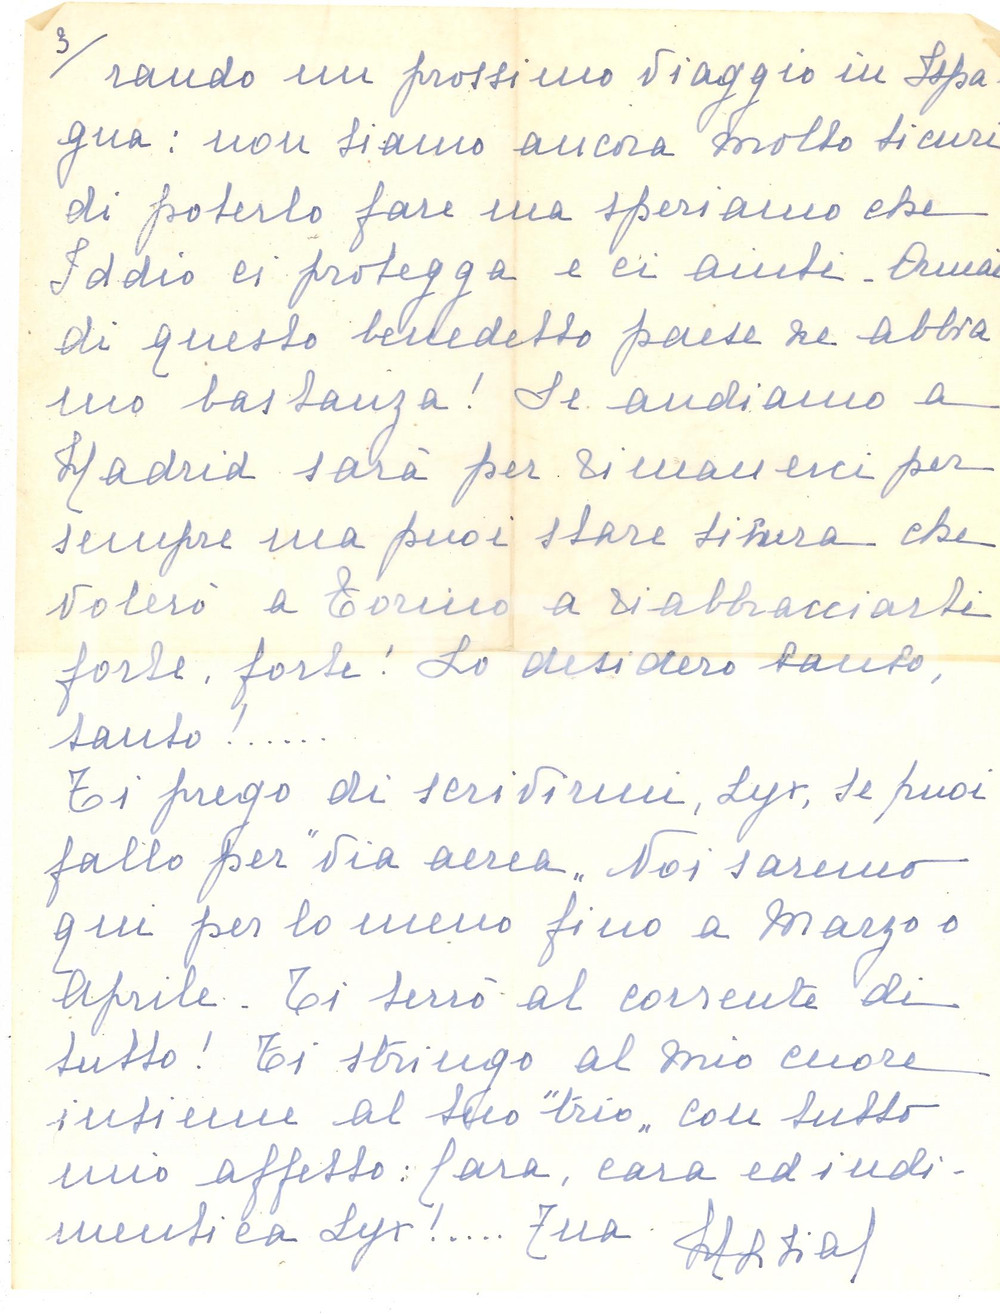 3/
rando un prossimo viaggio in Ispa
gna: non siamo ancora molto sicuri
di poterlo fare ma speriamo che
Iddio ci protegga e ci aiuti - Ormai
di questo benedetto paese ne abbia
mo bastanza! Se andiamo a
Madrid sarà per rimanerci per
sempre ma puoi stare sicura che
volerò a Torino a riabbracciarti
forte, forte! Lo desidero tanto,
tanto!......
Ti prego di scrivirmi, Lyx, se puoi
fallo per "via aerea„ Noi saremo
qui per lo meno fino a Marzo o
Aprile - Ti terrò al corrente di
tutto! Ti stringo al mio cuore
insieme al tuo "trio„ con tutto
mio affetto: Cara, cara ed indi-
mentica Lyx!.... Tua